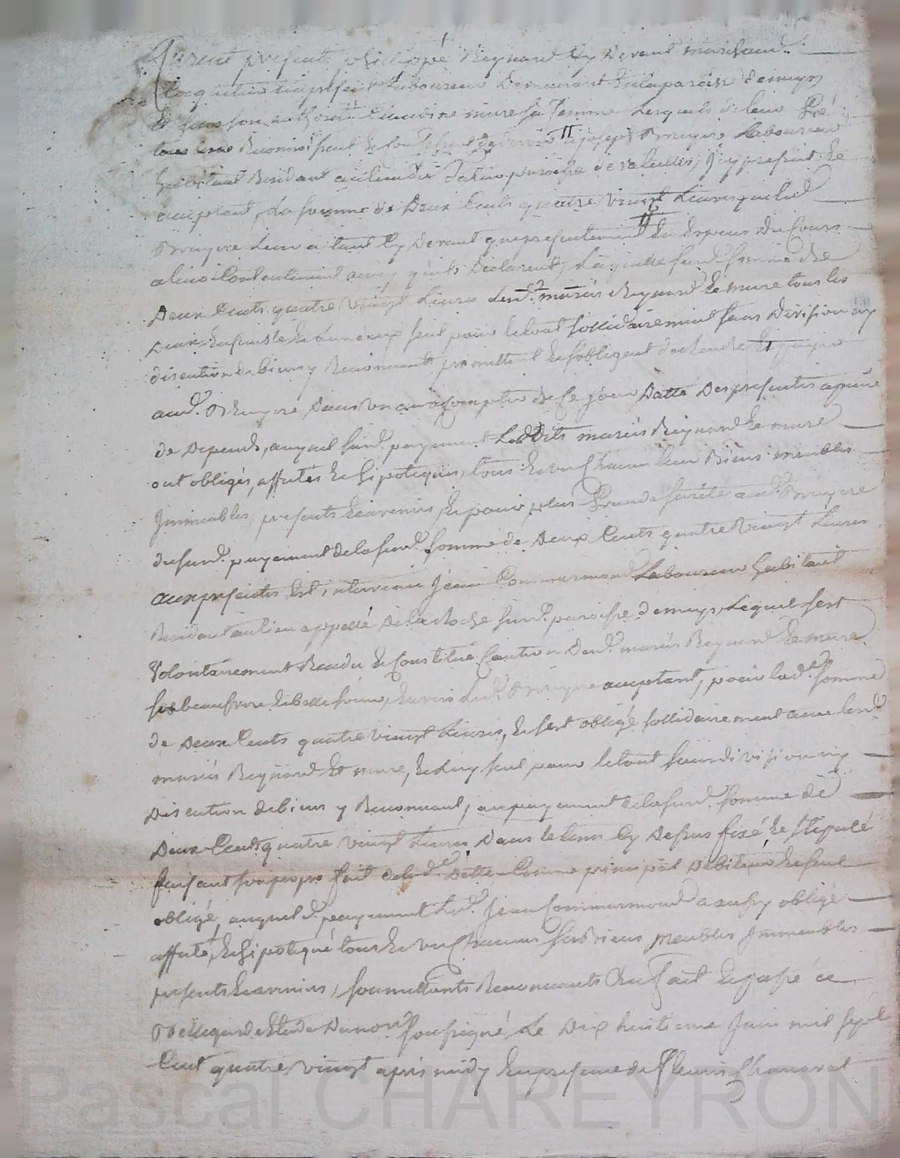 furent presents philippe Reynard Cy Devant marchand
a present Laboureur Demeurant paroisse
mure sa femme Lesquels de leur gré
Reconnoissent joseph Bruyere Laboureur
habitant Residant paroisse de icy present et
aceptant, La somme de Deux Cents quatre vingt Livres que led
Bruyere Leur a Cy Devant en Especes du Cours
contentement ainsy qu'ils Declarent, Laquelle susd. somme de
Deux Cents quatre vingt Livres Lesd. mariés Reynard et mure tous les
Deux Ensemble et L'un d'eux seul pour le tout sollidairement sans Division ny
discution de biens y Renonceants promettent et s'obligent de et payer
aud. Bruyere, Dans Un an a Compter de Ce jour Datte Des presentes a peine
de Depends, auquel susd. payement Lesdits mariés Reynard et mure
ont obligés, affectés et hipotequés tous et un Chacun leur Biens meubles
Immeubles, presents et avenirs, et pour plus Grande sureté aud. Bruyere
du susd. payement de la susd. somme de Deux Cents quatre vingt Livres
aux presentes Est intervenu Jean Commermond Laboureur habitant
Residant au lieu appellé De La Roche susd. paroisse Lequel s'est
Volontairement Rendu et Constitué Caution Desd. mariés Reynard et mure
ses beau frere et belle soeur, Envers Led. Bruyere aceptant, pour lad. somme
de Deux Cents quatre vingt Livres, et s'est obligé sollidairement avec lesd.
mariés Reynard et mure, et Luy seul pour le tout sans division ny
Discution de biens y Renonceant, au payement de la susd. somme de
Deux Cents quatre vingt Livres, Dans le tems Cy Dessus fixé et stipulé
faisant son propre fait de lad. Dette Comme principal Debiteur et seul
obligé, auquel d. payement Led. Jean Commermond a aussy obligé
affecté, et hipotequé tous et un Chacuns ses Biens meubles Immeubles
presents et avenirs, soumettants Renonceants &c fait et passé a
Etude Du nore. soussigné Le Dix huitieme Juin mil sept
Cent quatre vingt apres midy En presence de fleury Chanavat
Pascal CHAREYRON